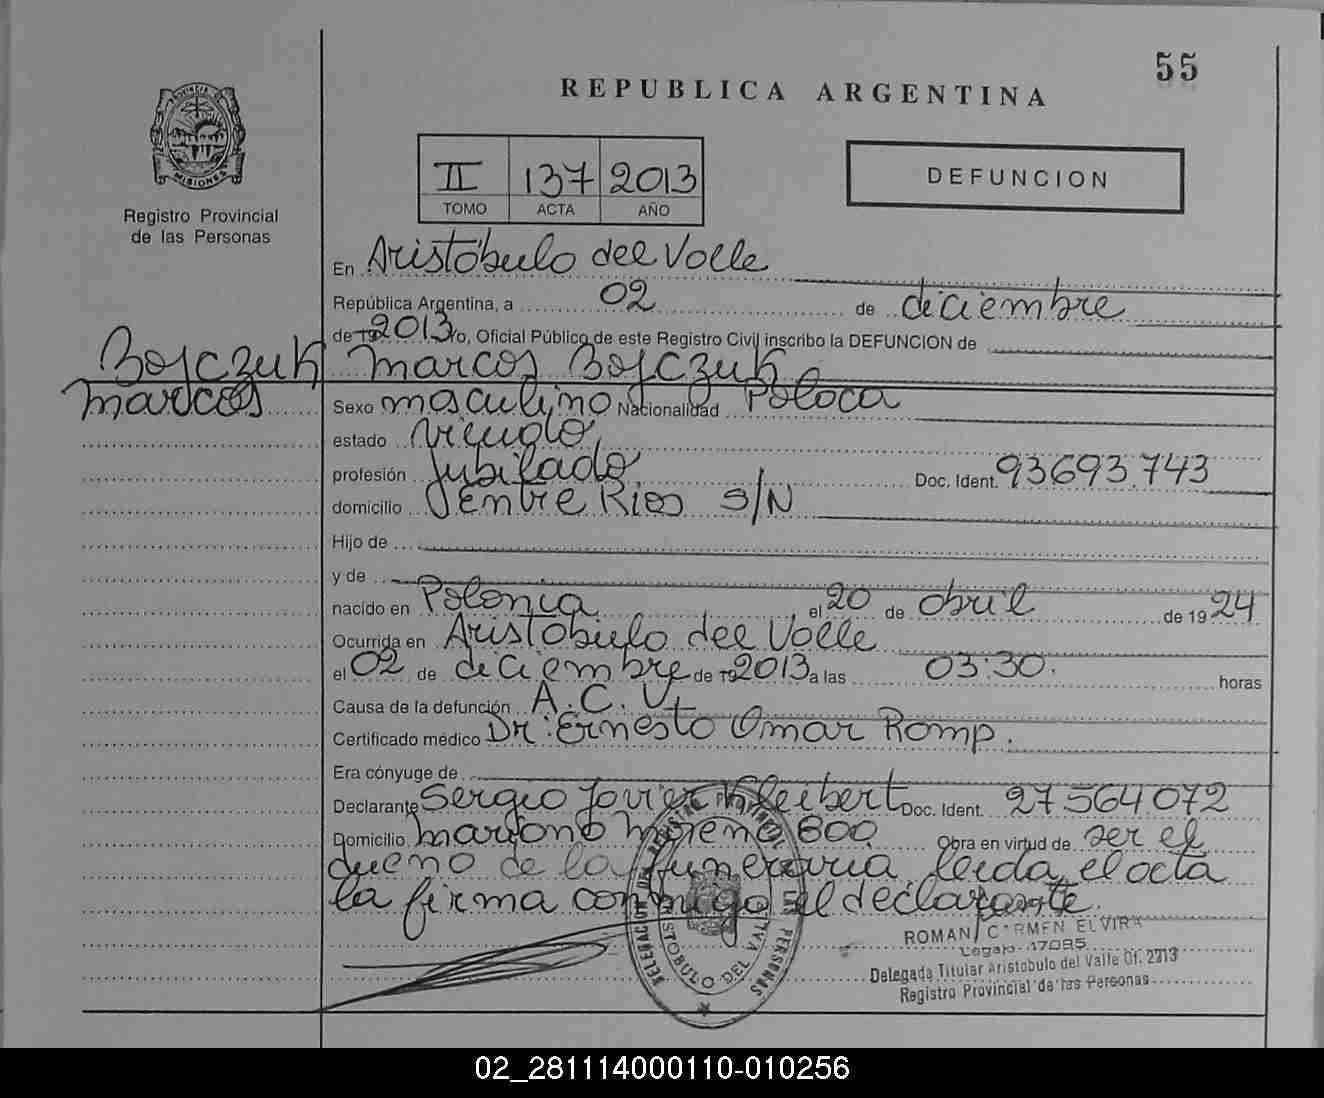 55
REPUBLICA ARGENTINA
PROVINCIA DE
MISIONES
Registro Provincial
de las Personas
II 137 2013
TOMO ACTA AÑO
DEFUNCION
En Aristóbulo del Valle
República Argentina, a 02 de diciembre
de 19 2013 yo, Oficial Público de este Registro Civil inscribo la DEFUNCION de
Bojczuk Marcos Bojczuk
Marcos
Sexo masculino Nacionalidad Polaca
estado Viudo
profesión Jubilado Doc. Ident. 93693.743
domicilio Entre Rios S/N
Hijo de
y de
nacido en Polonia el 20 de abril de 1924
Ocurrida en Aristóbulo del Valle
el 02 de diciembre de 19 2013 a las 03:30. horas
Causa de la defunción A.C.V.
Certificado médico Dr. Ernesto Omar Romp.
Era cónyuge de
Declarante Sergio Javier Kleibert Doc. Ident. 27564072
Domicilio Mariano Moreno 800 Obra en virtud de ser el
dueño de la funeraria leida el acta
la firma conmigo el declarante.
DELEGACION DE REGISTRO PROVINCIAL DE LAS PERSONAS
ARISTOBULO DEL VALLE
ROMAN CARMEN ELVIRA
Legajo 17085
Delegada Titular Aristobulo del Valle Of. 2213
Registro Provincial de las Personas
02_281114000110-010256